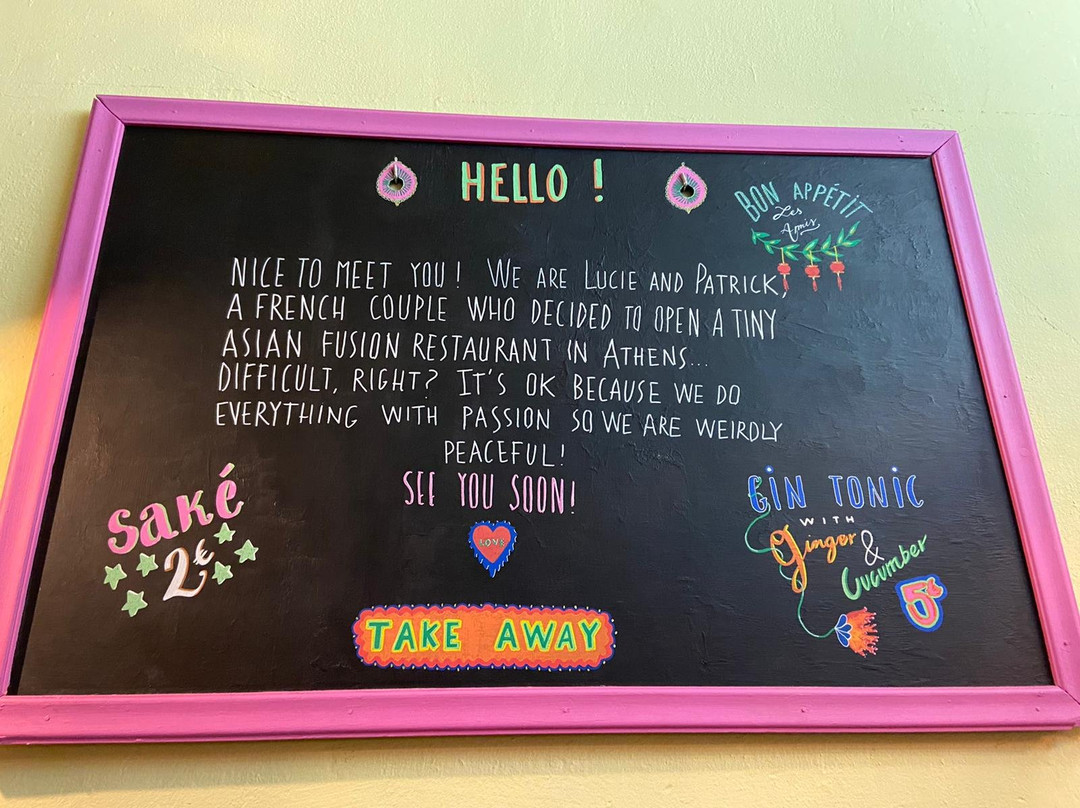 HELLO !
BON APPÉTIT
Les
Amis
NICE TO MEET YOU! WE ARE LUCIE AND PATRICK,
A FRENCH COUPLE WHO DECIDED TO OPEN A TINY
ASIAN FUSION RESTAURANT IN ATHENS...
DIFFICULT, RIGHT? IT'S OK BECAUSE WE DO
EVERYTHING WITH PASSION SO WE ARE WEIRDLY
PEACEFUL!
SEE YOU SOON!
LOVE
saké
2€
GIN TONIC
WITH
Ginger &
Cucumber
5€
TAKE AWAY